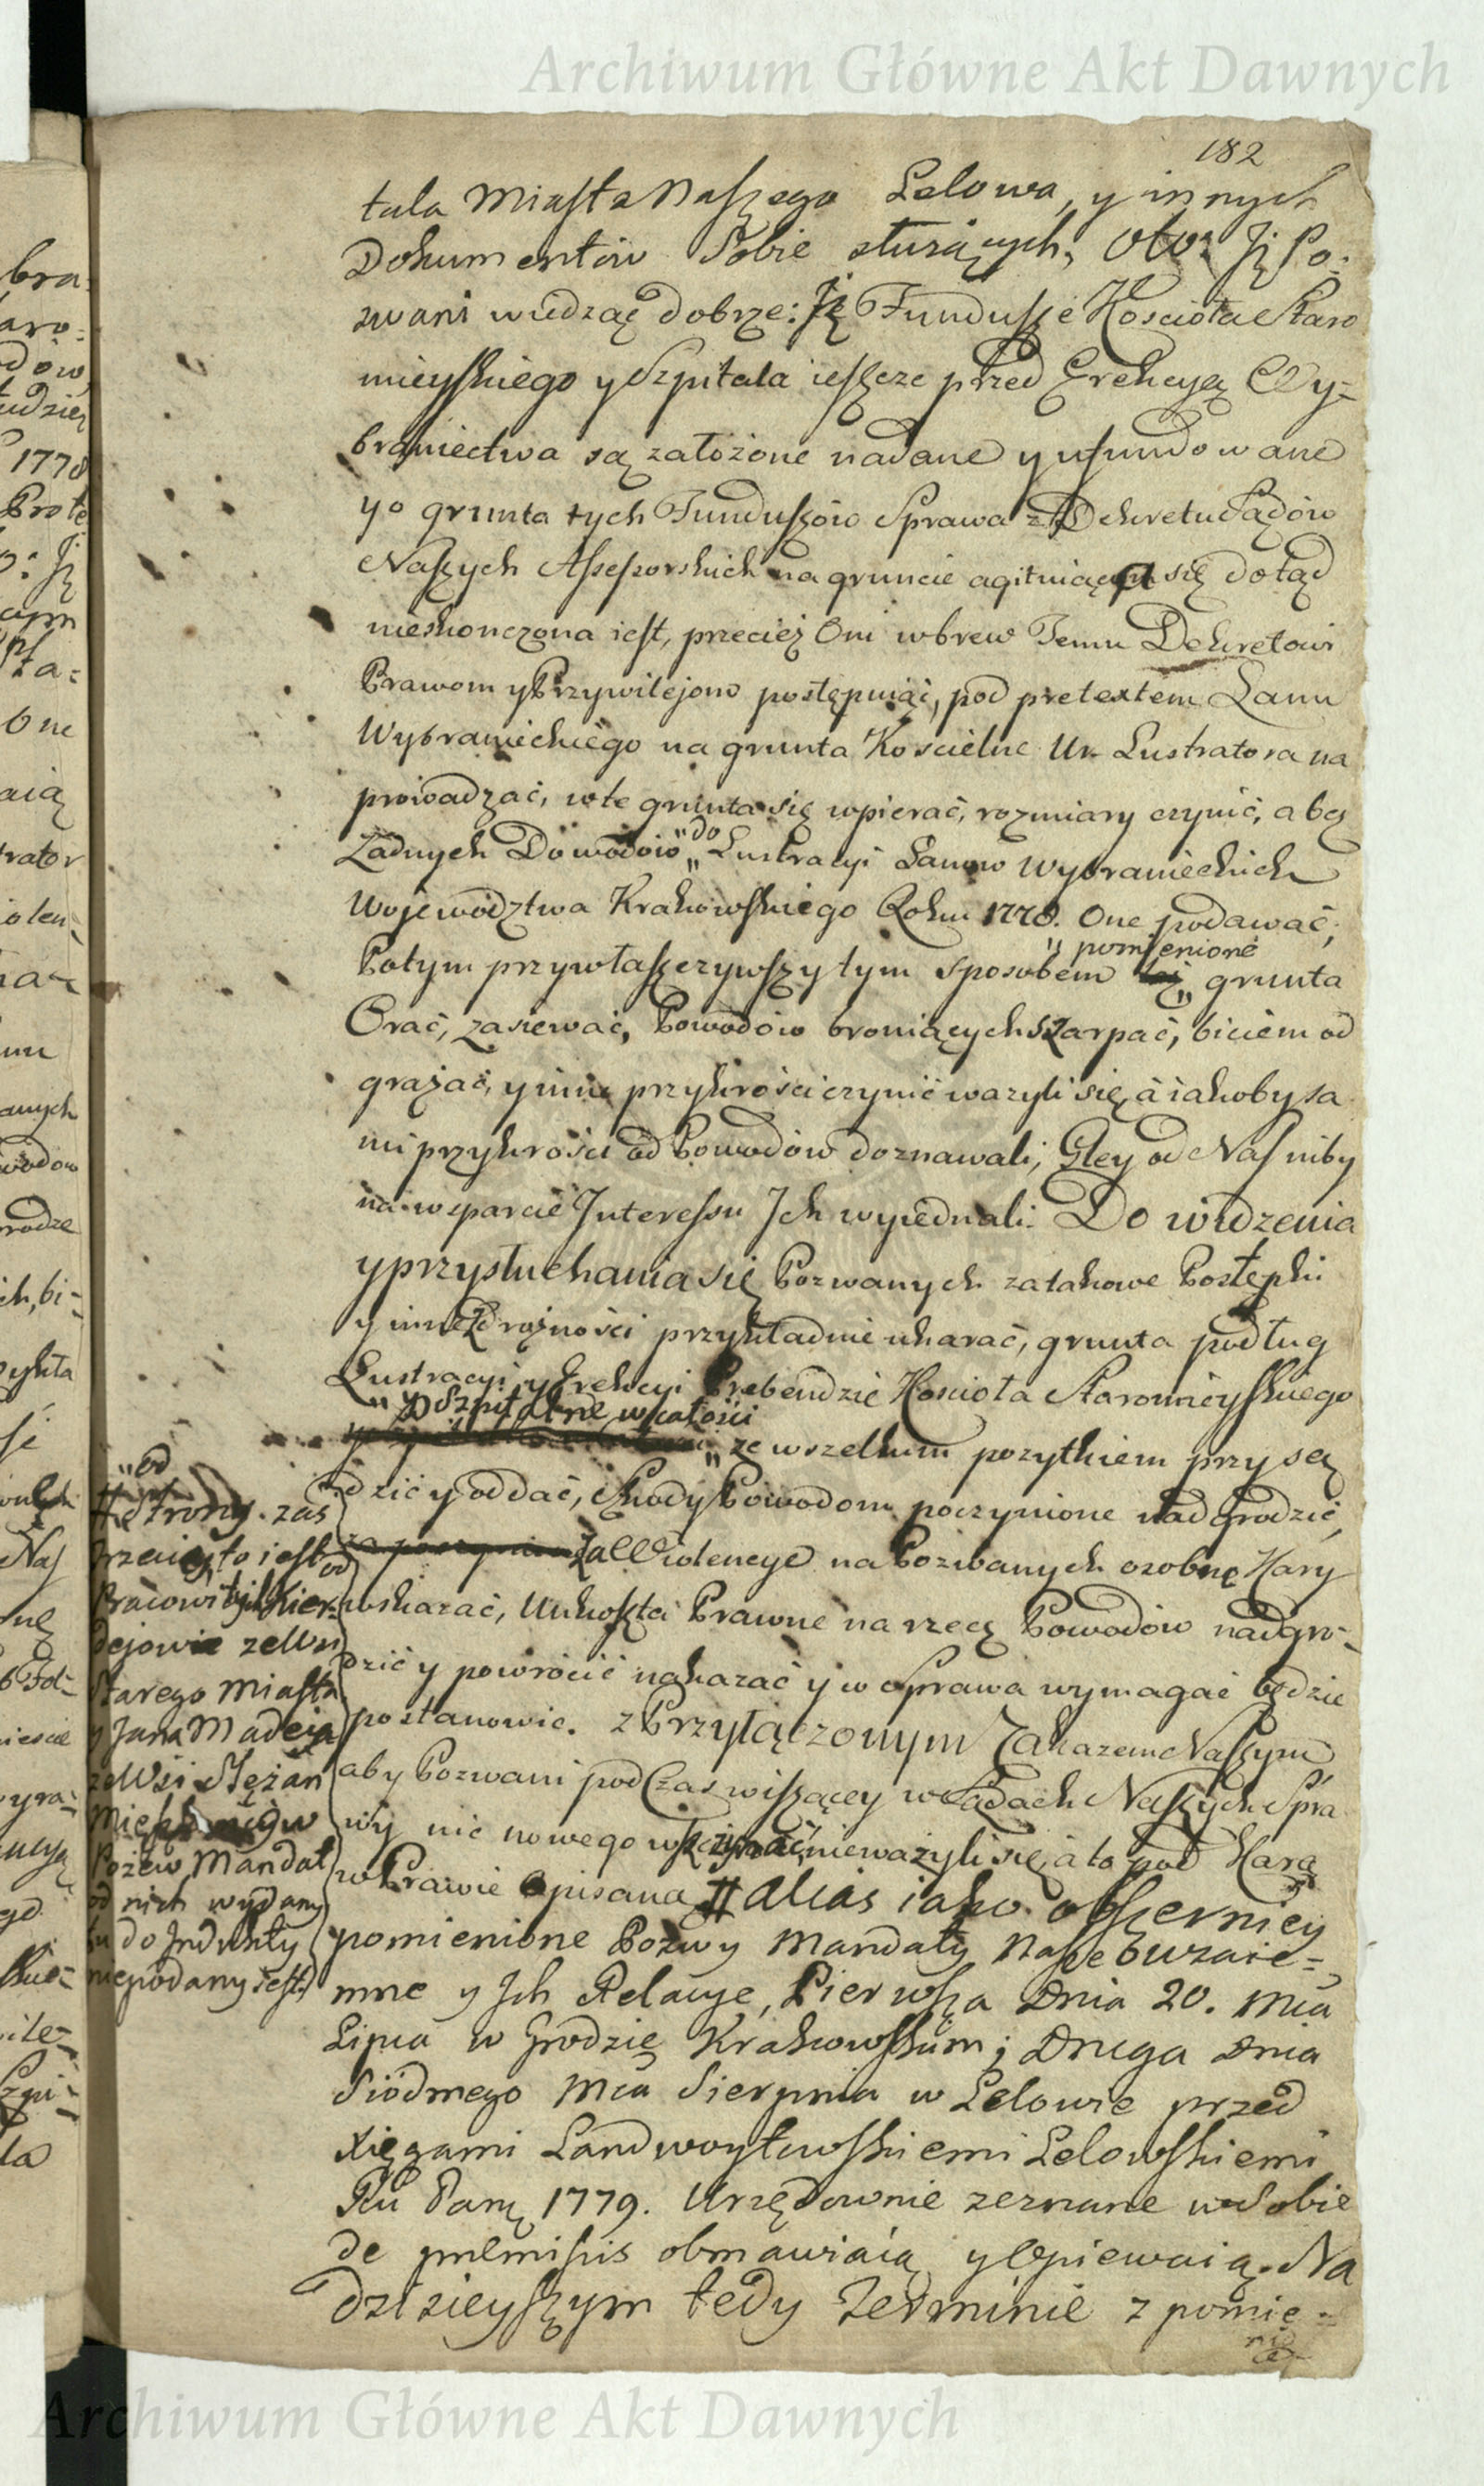 Archiwum Główne Akt Dawnych
182
tala Miasta Naszego Lelowa, y innych
Dokumentów Sobie służących, Obo: Jż Po:
zwani widząc dobrze: Jż Fundusze Kościoła Staro
mieyskiego y Szpitala ieszcze przed Erekcyą Wy=
braniectwa są założone nadane y ufundowane
y o grunta tych Funduszów Sprawa z Dekretu Sądów
Naszych Assessorskich na gruncie agituiąca się dotąd
nieskonczona iest, przecież Oni wbrew Temu Dekretowi
Prawom y Przywilejom postępuiąc, pod pretextem Łanu
Wybranieckiego na grunta Kościelne Ur. Lustratora na
prowadzać, w te grunta się wpierać, rozmiary czynić, a bez
Żadnych Dowodów „do„ Lustracyi Łanow Wybranieckich
Województwa Krakowskiego Roku 1778. One podawać;
Potym przywłaszczywszy tym sposobem „pomienione„ grunta
Orać, zasiewać, Powodów broniących szarpać, biciem od
grażać, y inne przykrości czynić ważyli się, à iakoby sa
mi przykrości od Powodów doznawali, Gley od Nas niby
na wsparcie Interessu Jch wyiednali. Do widzenia
y przysłuchania się Pozwanych za takowe Postępki
y inne Zdrożności przykładnie ukarać, grunta podług
Lustracyi y Erekcyi Prebendzie Kościoła Staromieyskiego
„y Szpitalne w całości
„ ze wszelkim pożytkiem przysą
dzić y oddać, Szkody Powodom poczynione nadgrodzić,
Za Wiolencye na Pozwanych osobne Kary
wskazać, Unkoszta Prawne na rzecz Powodów nadgro=
dzić y powrócić nakazać y co Sprawa wymagać będzie
postanowić. z Przyłączonym Zakazem Naszym
aby Pozwani pod Czas wiszącey w Sądach Naszych Spra
wy nic nowego wszczynać nieważyli się, a to pod Karą
w Prawie Opisaną # alias iako obszerniey
pomienione Pozwy Mandaty Nasze Obuzaie=
mne y Jch Relacye, Pierwsza Dnia 20. Mca
Lipca w Grodzie Krakowskim; Druga Dnia
Siódmego Mca Sierpnia w Lelowie przed
Xięgami Landwoytowskiemi Lelowskiemi
Rku Pańs. 1779. Urzędownie zeznane w Sobie
de premissis obmawiaią y Opiewaią. Na
dzisieyszym tedy Terminie z pomie=
nio
# „od
Strony zaś
trzeciey to iest od
Pracowitych Kier=
dejowie ze Wsi
Starego Miasta
y Jana Madeja
ze Wsi Slężan
Pozew Mandat
od nich wydany
tu do Jndukty
niepodany iest.
Archiwum Główne Akt Dawnych